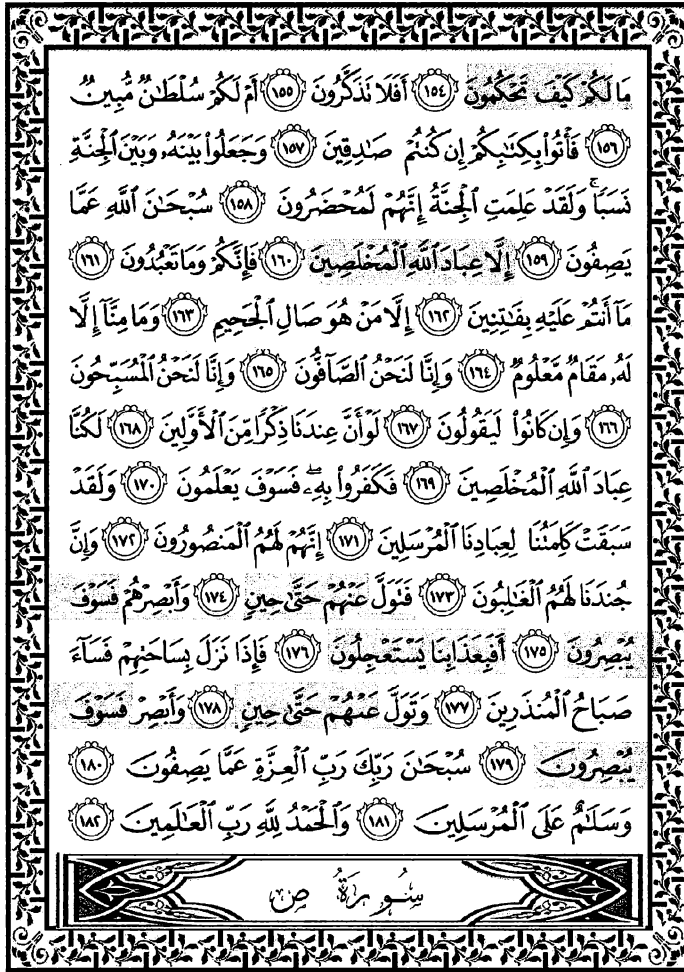 مَا لَكُمْ كَيْفَ تَحْكُمُونَ ﴿١٥٤﴾ أَفَلَا تَذَكَّرُونَ ﴿١٥٥﴾ أَمْ لَكُمْ سُلْطَٰنٌ مُّبِينٌ
﴿١٥٦﴾ فَأْتُوا۟ بِكِتَٰبِكُمْ إِن كُنتُمْ صَٰدِقِينَ ﴿١٥٧﴾ وَجَعَلُوا۟ بَيْنَهُۥ وَبَيْنَ ٱلْجِنَّةِ
نَسَبًا ۚ وَلَقَدْ عَلِمَتِ ٱلْجِنَّةُ إِنَّهُمْ لَمُحْضَرُونَ ﴿١٥٨﴾ سُبْحَٰنَ ٱللَّهِ عَمَّا
يَصِفُونَ ﴿١٥٩﴾ إِلَّا عِبَادَ ٱللَّهِ ٱلْمُخْلَصِينَ ﴿١٦٠﴾ فَإِنَّكُمْ وَمَا تَعْبُدُونَ ﴿١٦١﴾
مَآ أَنتُمْ عَلَيْهِ بِفَٰتِنِينَ ﴿١٦٢﴾ إِلَّا مَنْ هُوَ صَالِ ٱلْجَحِيمِ ﴿١٦٣﴾ وَمَا مِنَّآ إِلَّا
لَهُۥ مَقَامٌ مَّعْلُومٌ ﴿١٦٤﴾ وَإِنَّا لَنَحْنُ ٱلصَّآفُّونَ ﴿١٦٥﴾ وَإِنَّا لَنَحْنُ ٱلْمُسَبِّحُونَ
﴿١٦٦﴾ وَإِن كَانُوا۟ لَيَقُولُونَ ﴿١٦٧﴾ لَوْ أَنَّ عِندَنَا ذِكْرًا مِّنَ ٱلْأَوَّلِينَ ﴿١٦٨﴾ لَكُنَّا
عِبَادَ ٱللَّهِ ٱلْمُخْلَصِينَ ﴿١٦٩﴾ فَكَفَرُوا۟ بِهِۦ ۖ فَسَوْفَ يَعْلَمُونَ ﴿١٧٠﴾ وَلَقَدْ
سَبَقَتْ كَلِمَتُنَا لِعِبَادِنَا ٱلْمُرْسَلِينَ ﴿١٧١﴾ إِنَّهُمْ لَهُمُ ٱلْمَنصُورُونَ ﴿١٧٢﴾ وَإِنَّ
جُندَنَا لَهُمُ ٱلْغَٰلِبُونَ ﴿١٧٣﴾ فَتَوَلَّ عَنْهُمْ حَتَّىٰ حِينٍ ﴿١٧٤﴾ وَأَبْصِرْهُمْ فَسَوْفَ
يُبْصِرُونَ ﴿١٧٥﴾ أَفَبِعَذَابِنَا يَسْتَعْجِلُونَ ﴿١٧٦﴾ فَإِذَا نَزَلَ بِسَاحَتِهِمْ فَسَآءَ
صَبَاحُ ٱلْمُنذَرِينَ ﴿١٧٧﴾ وَتَوَلَّ عَنْهُمْ حَتَّىٰ حِينٍ ﴿١٧٨﴾ وَأَبْصِرْ فَسَوْفَ
يُبْصِرُونَ ﴿١٧٩﴾ سُبْحَٰنَ رَبِّكَ رَبِّ ٱلْعِزَّةِ عَمَّا يَصِفُونَ ﴿١٨٠﴾
وَسَلَٰمٌ عَلَى ٱلْمُرْسَلِينَ ﴿١٨١﴾ وَٱلْحَمْدُ لِلَّهِ رَبِّ ٱلْعَٰلَمِينَ ﴿١٨٢﴾
سُورَةُ ص